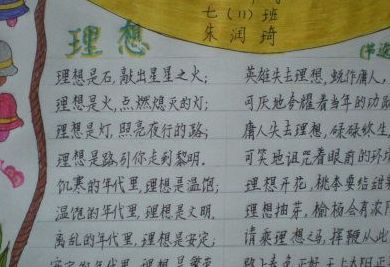 七(11)班
朱润琦
理想
理想是石,敲出星星之火;
理想是火,点燃熄灭的灯;
理想是灯,照亮夜行的路;
理想是路引你走到黎明.
饥寒的年代里,理想是温饱;
温饱的年代里,理想是文明.
离乱的年代里,理想是安定;
安定的年代里,理想是繁荣
英雄失去理想,蜕作庸人,
可厌地夸耀着当年的功
庸人失去理想,碌碌终生
可笑地诅咒着眼前的环
理想开花,桃李要结甜
理想抽芽,榆杨会有浓
请乘理想之马,挥鞭从此
路上春色正好,天上太阳正